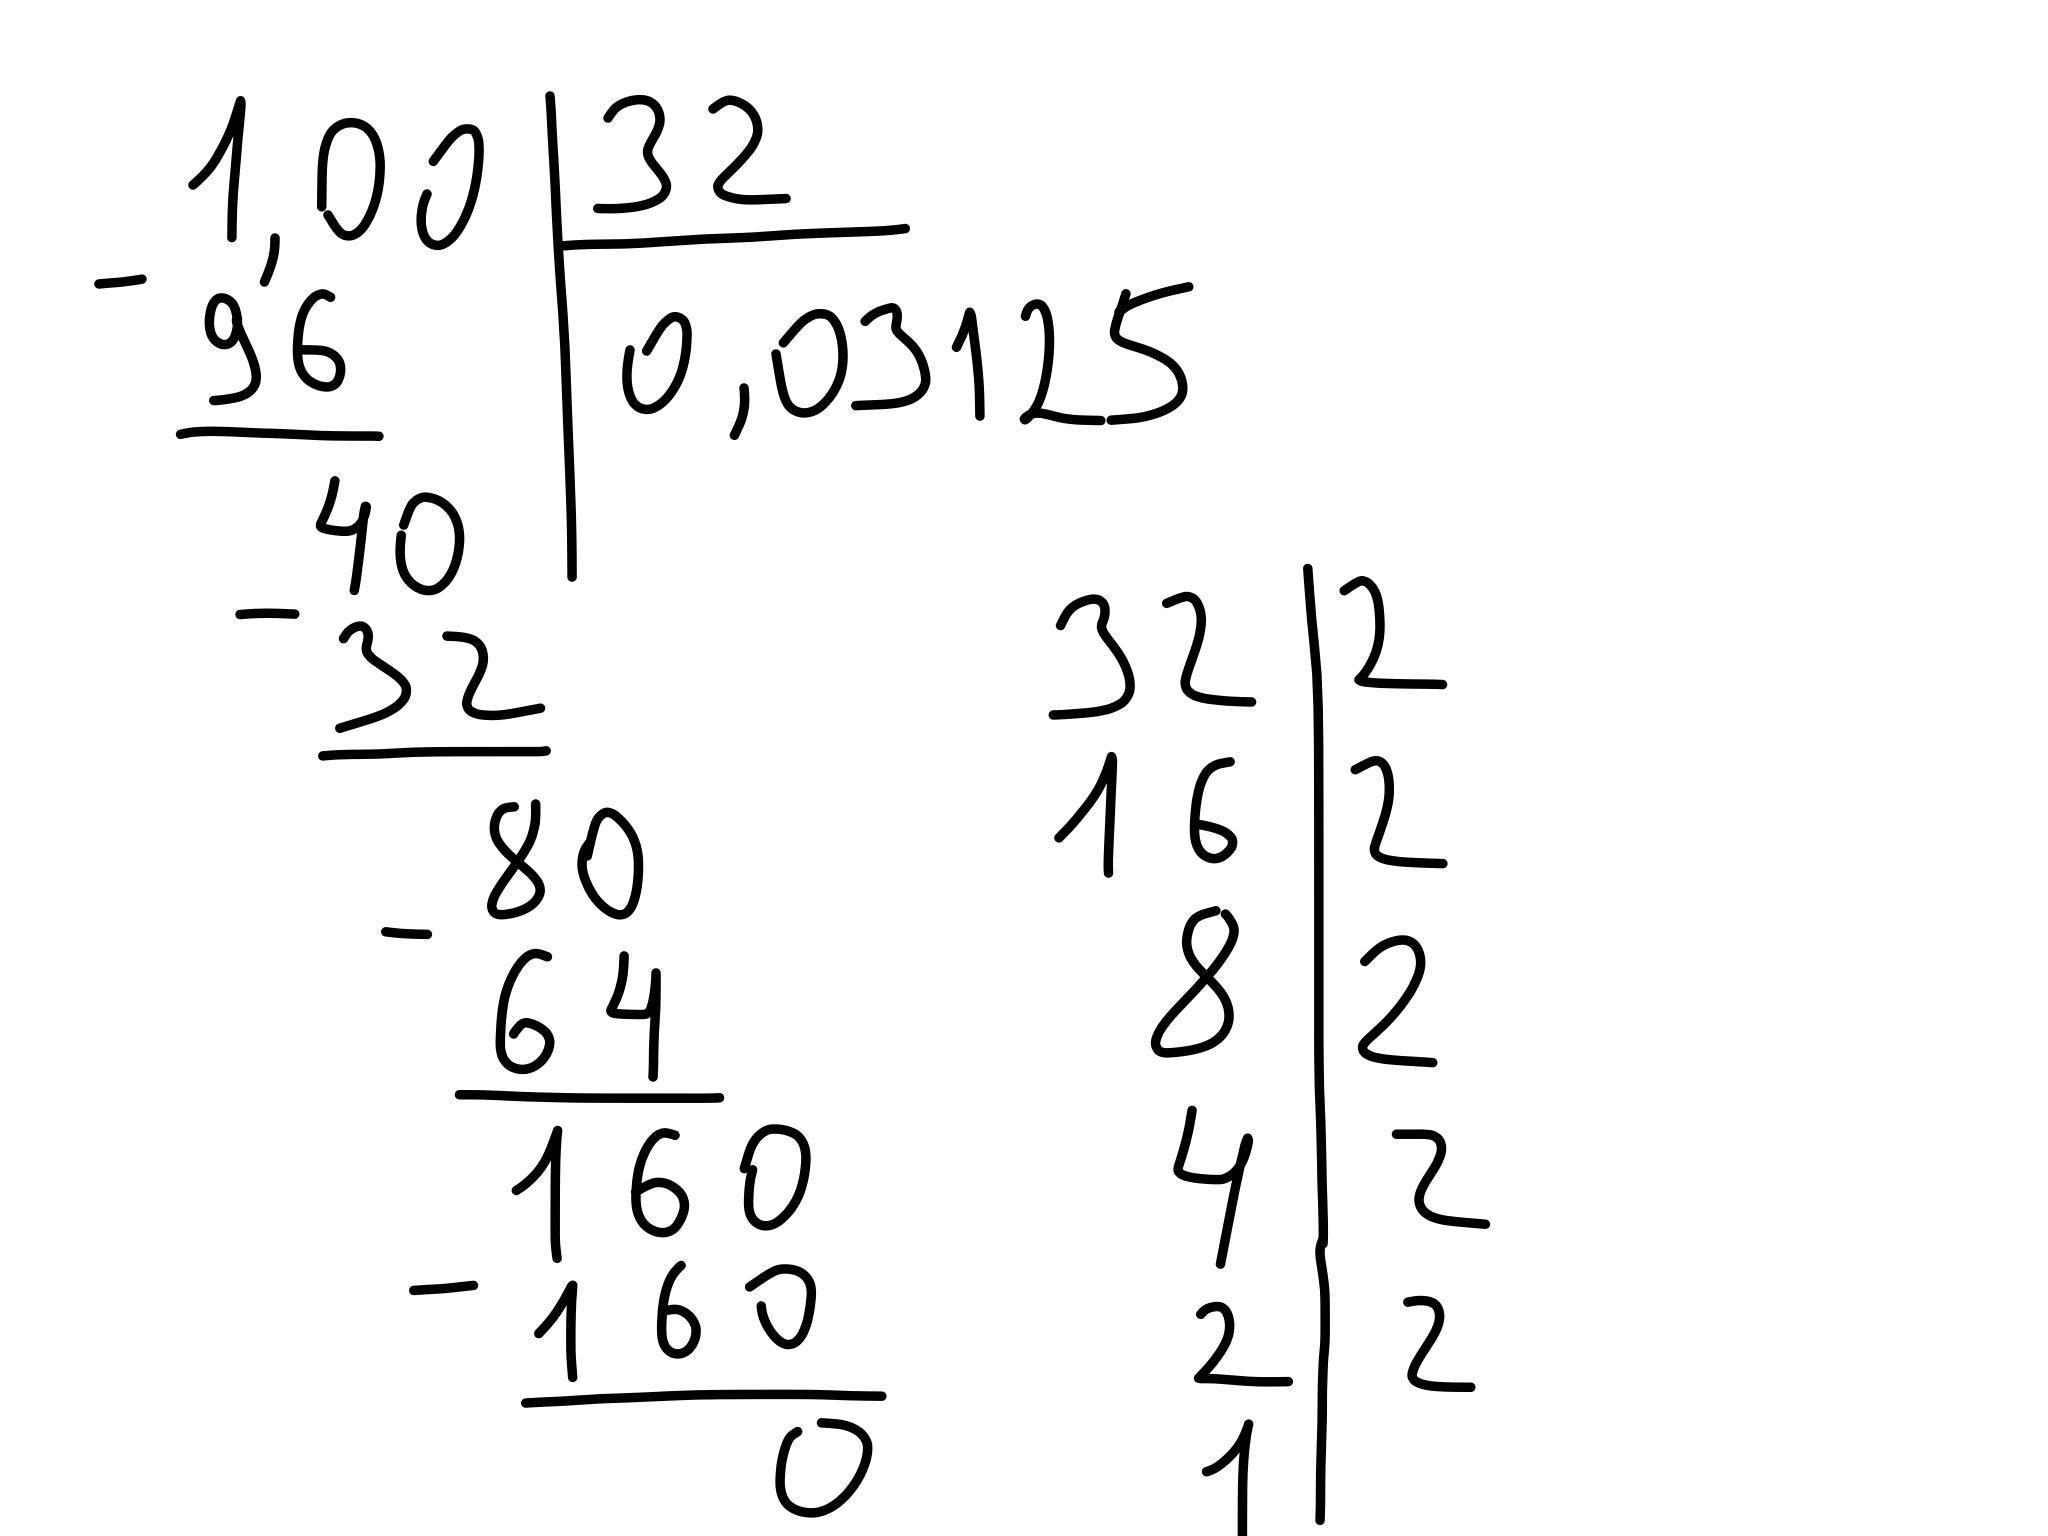 1,00 32
- 96 0,03125
40
- 32
80
- 64
160
- 160
0
32 2
16 2
8 2
4 2
2 2
1